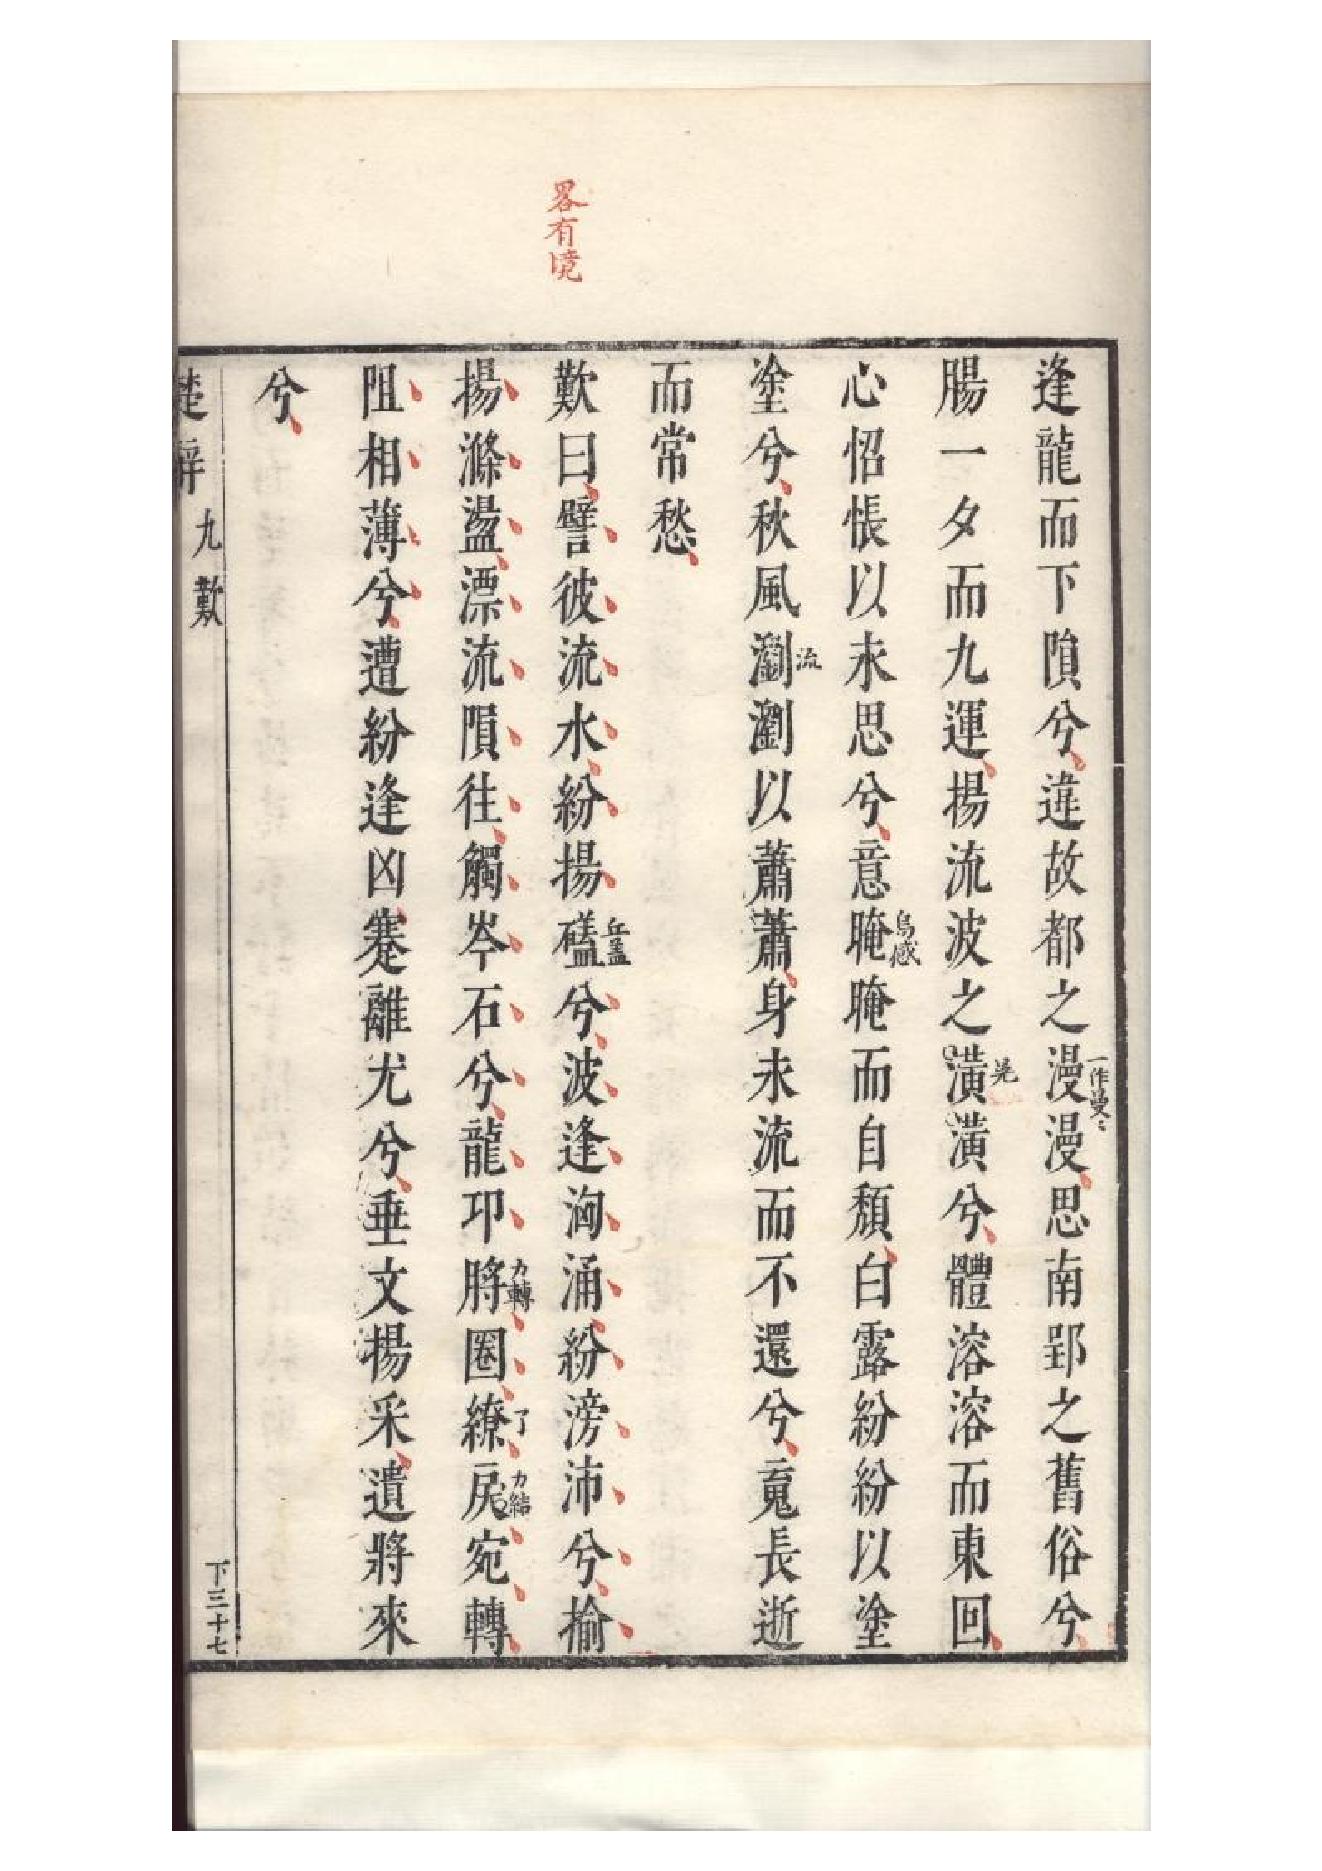 畧有境
逢龍而下隕兮違故都之漫一作曼〻漫思南郢之舊俗兮
腸一夕而九運揚流波之潢晃潢兮體溶溶而東回
心怊悵以永思兮意晻烏感晻而自頹白露紛紛以塗
塗兮秋風瀏流瀏以蕭蕭身永流而不還兮䰟長逝
而常愁
歎曰譬彼流水紛揚磕丘盖兮波逢洶涌紛滂沛兮揄
揚滌盪漂流隕往觸岑石兮龍卭脟力轉圈繚了戾力結宛轉
阻相薄兮遭紛逢凶蹇離尤兮垂文揚采遺將來
兮
楚辭 九歎 下三十七